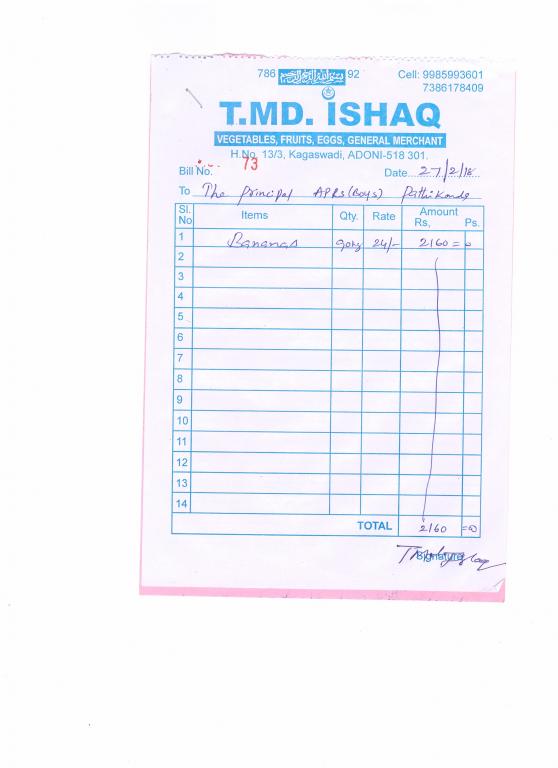 786 92 Cell: 9985993601
7386178409
T.MD. ISHAQ
VEGETABLES, FRUITS, EGGS, GENERAL MERCHANT
H.No. 13/3, Kagaswadi, ADONI-518 301.
Bill No. 73 Date 27/2/18
To The Principal APRS (Boys) Pathikonda
Sl. No Items Qty. Rate Amount Rs, Ps.
1 Bananas 90kg 24/- 2160 = 0
2
3
4
5
6
7
8
9
10
11
12
13
14
TOTAL 2160 =0
Signature